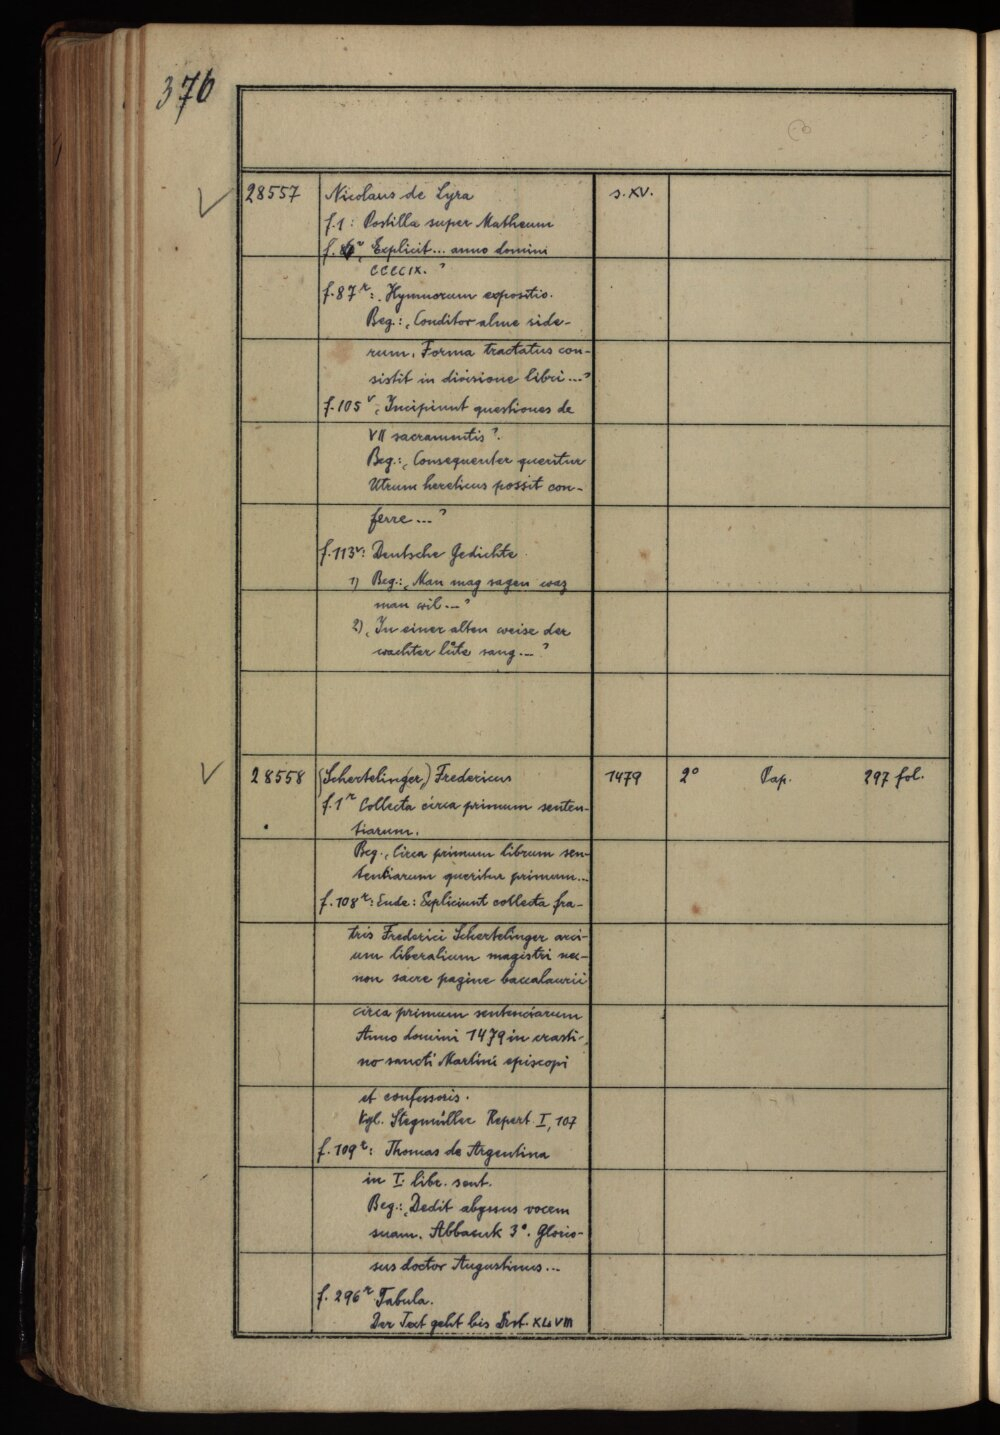 376
28557 Nicolaus de Lyra s. XV.
f. 1: Postilla super Matheum
f. 86r „Explicit... anno domini
CCCCIX."
f. 87r: „Hymnorum expositio.
Beg.: „Conditor alme side-
rum. Forma tractatus con-
sistit in divisione libri..."
f. 105v „Incipiunt questiones de
VII sacramentis".
Beg.: „Consequenter queritur
Utrum hereticus possit con-
ferre..."
f. 113v: Deutsche Gedichte.
1) Beg.: „Man mag sagen waz
man wil..."
2) „In einer alten weise der
wachter lůte sang..."
28558 (Schertelinger,) Fredericus 1479 2° Pap. 297 fol.
f. 1r Collecta circa primum senten-
tiarum.
Beg. „Circa primum librum sen-
tentiarum queritur primum...
f. 108r: Ende: Expliciunt collecta fra-
tris Frederici Schertelinger arci-
um liberalium magistri nec-
non sacre pagine baccalaurii
circa primum sentenciarum
Anno domini 1479 in crasti-
no sancti Martini episcopi
et confessoris.
Vgl. Stegmüller Repert. I, 107
f. 109r: Thomas de Argentina
in I. libr. sent.
Beg.: „Dedit abyssus vocem
suam. Abbacuk 3°. Glorio-
sus doctor Augustinus...
f. 296r Tabula.
Der Text geht bis Dist. XLVIII